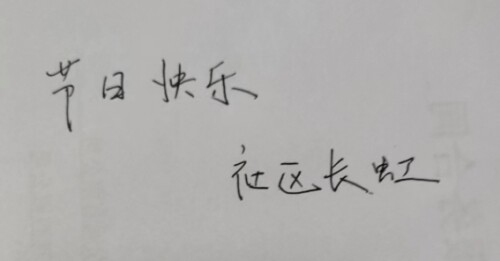 节日快乐
社区长虹